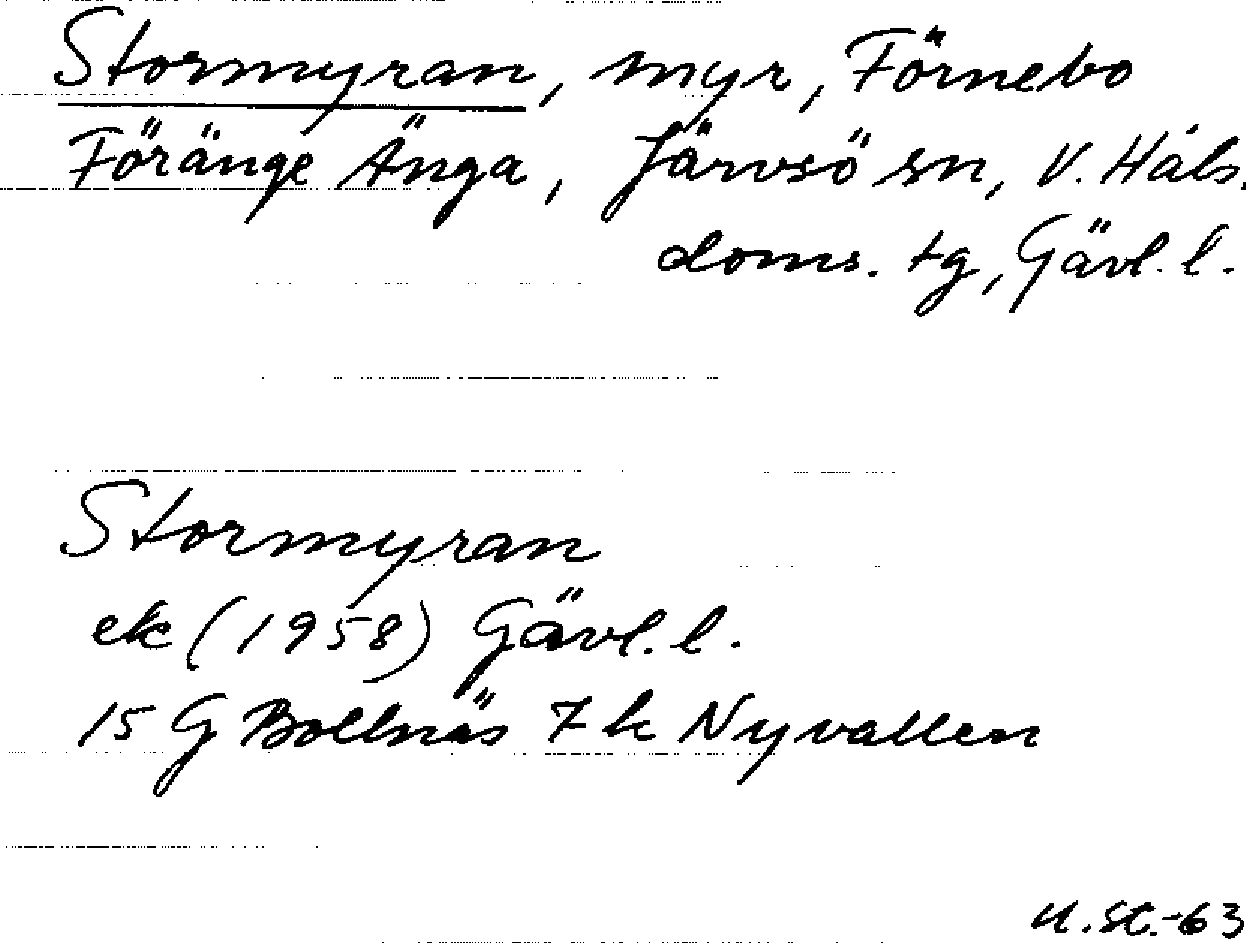 Stormyran, myr, Förnebo
Föränge Änga, Järvsö sn, V. Häls.
doms. tg, Gävl. l.
Stormyran
ek (1958) Gävl. l.
15 G Bollnäs 7 k Nyvallen
U. St. -63